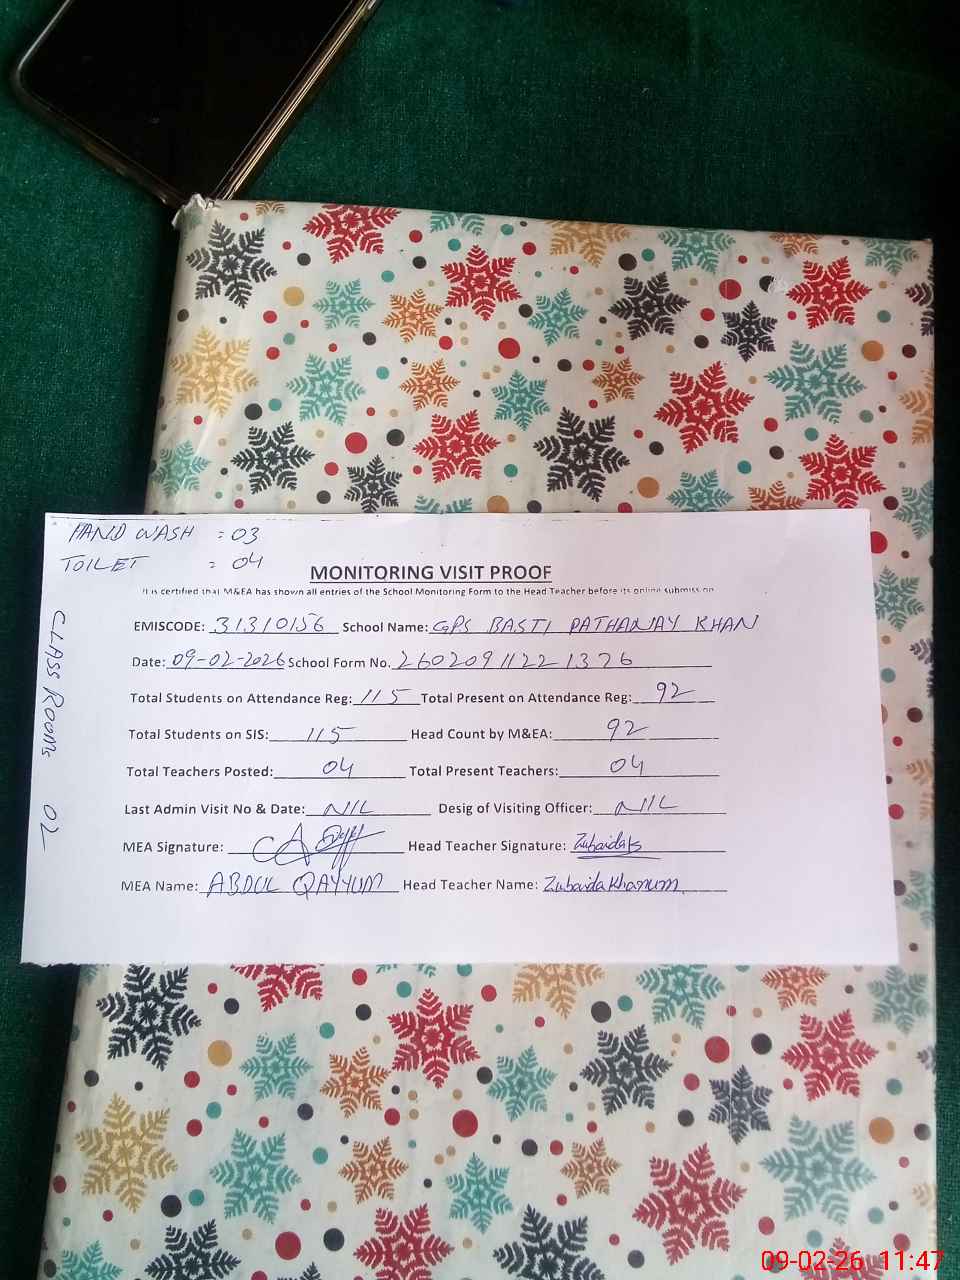 HAND WASH : 03
TOILET : 04
MONITORING VISIT PROOF
It is certified that M&EA has shown all entries of the School Monitoring Form to the Head Teacher before its online submission
EMISCODE: 31310156 School Name: GPS BASTI PATHANAY KHAN
Date: 09-02-2026 School Form No. 26020911221376
Total Students on Attendance Reg: 115 Total Present on Attendance Reg: 92
Total Students on SIS: 115 Head Count by M&EA: 92
Total Teachers Posted: 04 Total Present Teachers: 04
Last Admin Visit No & Date: NIL Desig of Visiting Officer: NIL
MEA Signature: Head Teacher Signature: Zubaida
MEA Name: ABDUL QAYYUM Head Teacher Name: Zubaida Khanum
CLASS ROOMS 02
09-02-26 11:47